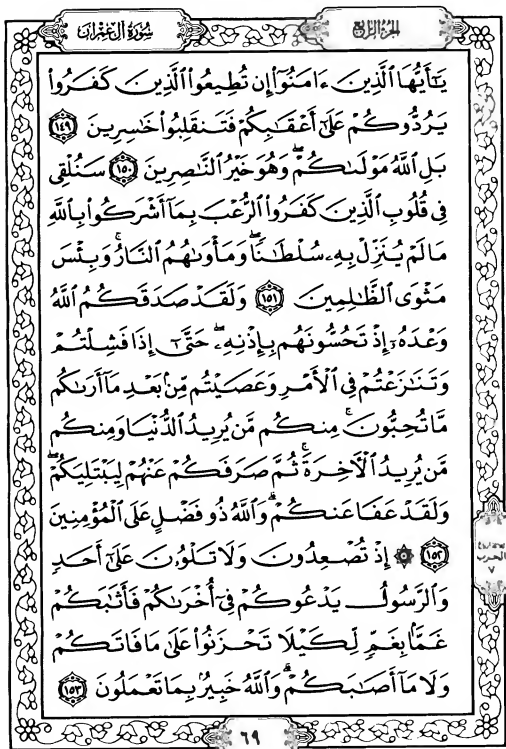 الجزء الرابع
سورة آل عمران
يَٰٓأَيُّهَا ٱلَّذِينَ ءَامَنُوٓا۟ إِن تُطِيعُوا۟ ٱلَّذِينَ كَفَرُوا۟
يَرُدُّوكُمْ عَلَىٰٓ أَعْقَٰبِكُمْ فَتَنقَلِبُوا۟ خَٰسِرِينَ ١٤٩
بَلِ ٱللَّهُ مَوْلَىٰكُمْ ۖ وَهُوَ خَيْرُ ٱلنَّٰصِرِينَ ١٥٠ سَنُلْقِى
فِى قُلُوبِ ٱلَّذِينَ كَفَرُوا۟ ٱلرُّعْبَ بِمَآ أَشْرَكُوا۟ بِٱللَّهِ
مَا لَمْ يُنَزِّلْ بِهِۦ سُلْطَٰنًا ۖ وَمَأْوَىٰهُمُ ٱلنَّارُ ۚ وَبِئْسَ
مَثْوَى ٱلظَّٰلِمِينَ ١٥١ وَلَقَدْ صَدَقَكُمُ ٱللَّهُ
وَعْدَهُۥٓ إِذْ تَحُسُّونَهُم بِإِذْنِهِۦ ۖ حَتَّىٰٓ إِذَا فَشِلْتُمْ
وَتَنَٰزَعْتُمْ فِى ٱلْأَمْرِ وَعَصَيْتُم مِّنۢ بَعْدِ مَآ أَرَىٰكُم
مَّا تُحِبُّونَ ۚ مِنكُم مَّن يُرِيدُ ٱلدُّنْيَا وَمِنكُم
مَّن يُرِيدُ ٱلْءَاخِرَةَ ۚ ثُمَّ صَرَفَكُمْ عَنْهُمْ لِيَبْتَلِيَكُمْ ۖ
وَلَقَدْ عَفَا عَنكُمْ ۗ وَٱللَّهُ ذُو فَضْلٍ عَلَى ٱلْمُؤْمِنِينَ
١٥٢ ۞ إِذْ تُصْعِدُونَ وَلَا تَلْوُۥنَ عَلَىٰٓ أَحَدٍ
وَٱلرَّسُولُ يَدْعُوكُمْ فِىٓ أُخْرَىٰكُمْ فَأَثَٰبَكُمْ
غَمًّۢا بِغَمٍّ لِّكَيْلَا تَحْزَنُوا۟ عَلَىٰ مَا فَاتَكُمْ
وَلَا مَآ أَصَٰبَكُمْ ۗ وَٱللَّهُ خَبِيرٌۢ بِمَا تَعْمَلُونَ ١٥٣
الحزب
٧
٦٩